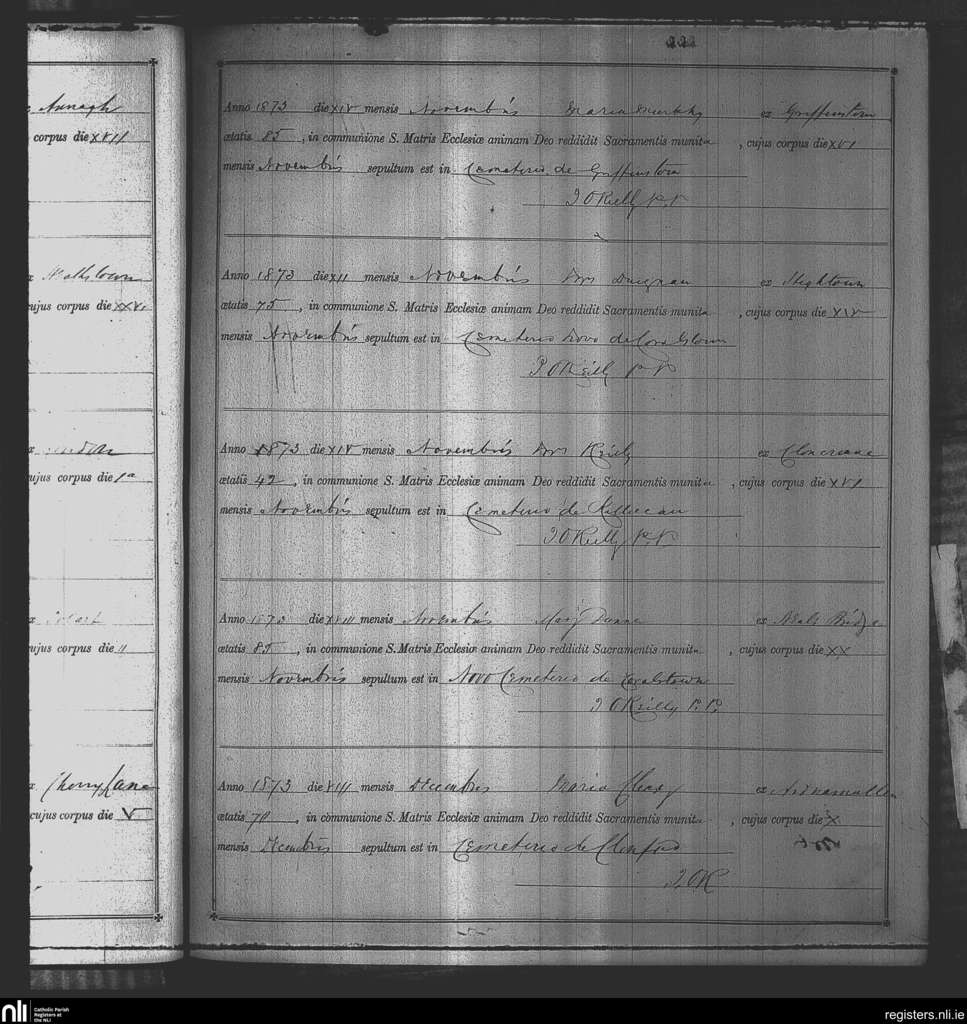 Annagh
corpus die XVII
Heathstown
cujus corpus die XXVI
cujus corpus die 1a
cujus corpus die 11
Cherry Lane
cujus corpus die V
Anno 1873 die XIV mensis Novembris Maria Murtha ex Griffinstown
ætatis 85, in communione S. Matris Ecclesiæ animam Deo reddidit Sacramentis munita, cujus corpus die XVI
mensis Novembris sepultum est in Cemeterio de Griffinstown
J O Reilly P. P.
Anno 1873 die XII mensis Novembris Duignan ex
ætatis 75, in communione S. Matris Ecclesiæ animam Deo reddidit Sacramentis munita, cujus corpus die XIV
mensis Novembris sepultum est in Cemeterio Novo de Coralstown
J O Reilly P P
Anno 1873 die XIV mensis Novembris Reily ex Cloncrane
ætatis 42, in communione S. Matris Ecclesiæ animam Deo reddidit Sacramentis munita, cujus corpus die XVI
mensis Novembris sepultum est in Cemeterio de Killucan
J O Reilly P. P.
Anno 1873 die XVIII mensis Novembris Mary Dunne ex Neals Bridge
ætatis 85, in communione S. Matris Ecclesiæ animam Deo reddidit Sacramentis munita, cujus corpus die XX
mensis Novembris sepultum est in Novo Cemeterio de Coralstown
J O Reilly P. P.
Anno 1873 die VIII mensis Decembris Maria Cleary ex
ætatis 70, in communione S. Matris Ecclesiæ animam Deo reddidit Sacramentis munita, cujus corpus die X
mensis Decembris sepultum est in Cemeterio de Clonfad
J. O R
nli
Catholic Parish
Registers at
the NLI
registers.nli.ie